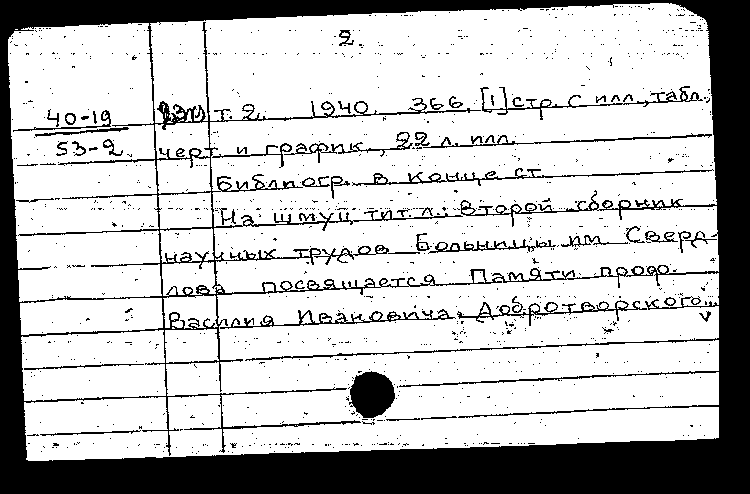 2.
40-19 т. 2. 1940. 366, [1] стр. с илл., табл.,
53-2 черт. и график., 22 л. илл.
Библиогр. в конце ст.
На шмуц. тит. л.: Второй сборник
научных трудов Больницы им. Сверд-
лова посвящается Памяти проф.
Василия Ивановича Добротворского...
v